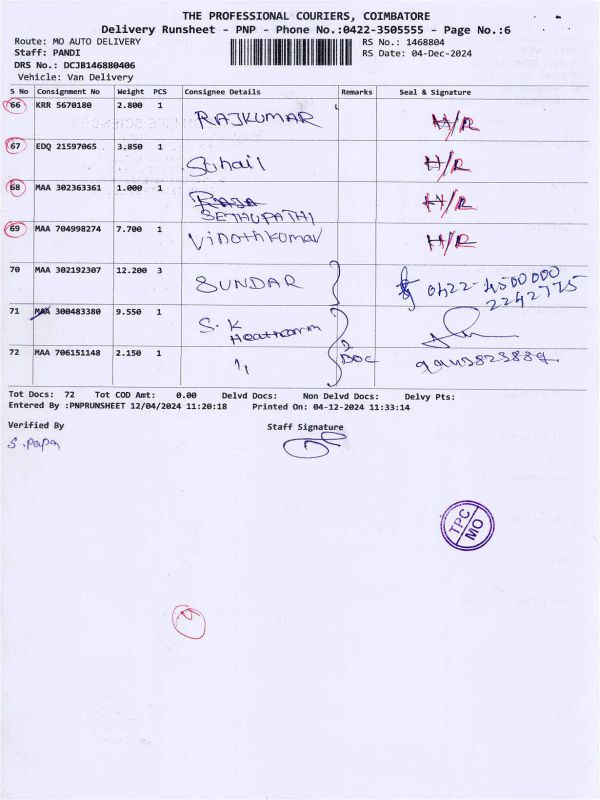 THE PROFESSIONAL COURIERS, COIMBATORE
Delivery Runsheet - PNP - Phone No.:0422-3505555 - Page No.:6
Route: MO AUTO DELIVERY
RS No.: 1468804
Staff: PANDI
RS Date: 04-Dec-2024
DRS No.: DCJB146880406
Vehicle: Van Delivery
S No Consignment No Weight PCS Consignee Details Remarks Seal & Signature
66 KRR 5670180 2.800 1 RAJKUMAR H/R
67 EDQ 21597065 3.850 1 Suhail H/R
68 MAA 302363361 1.000 1 H/R
SETHUPATHI
69 MAA 704998274 7.700 1 Vinothkumar H/R
70 MAA 302192307 12.200 3 SUNDAR 0422-4500000
2242775
71 MAA 300483380 9.550 1 S.K
72 MAA 706151148 2.150 1 2 DOC
Tot Docs: 72 Tot COD Amt: 0.00 Delvd Docs: Non Delvd Docs: Delvy Pts:
Entered By :PNPRUNSHEET 12/04/2024 11:20:18 Printed On: 04-12-2024 11:33:14
Verified By Staff Signature
S. Papa
TPC
MO